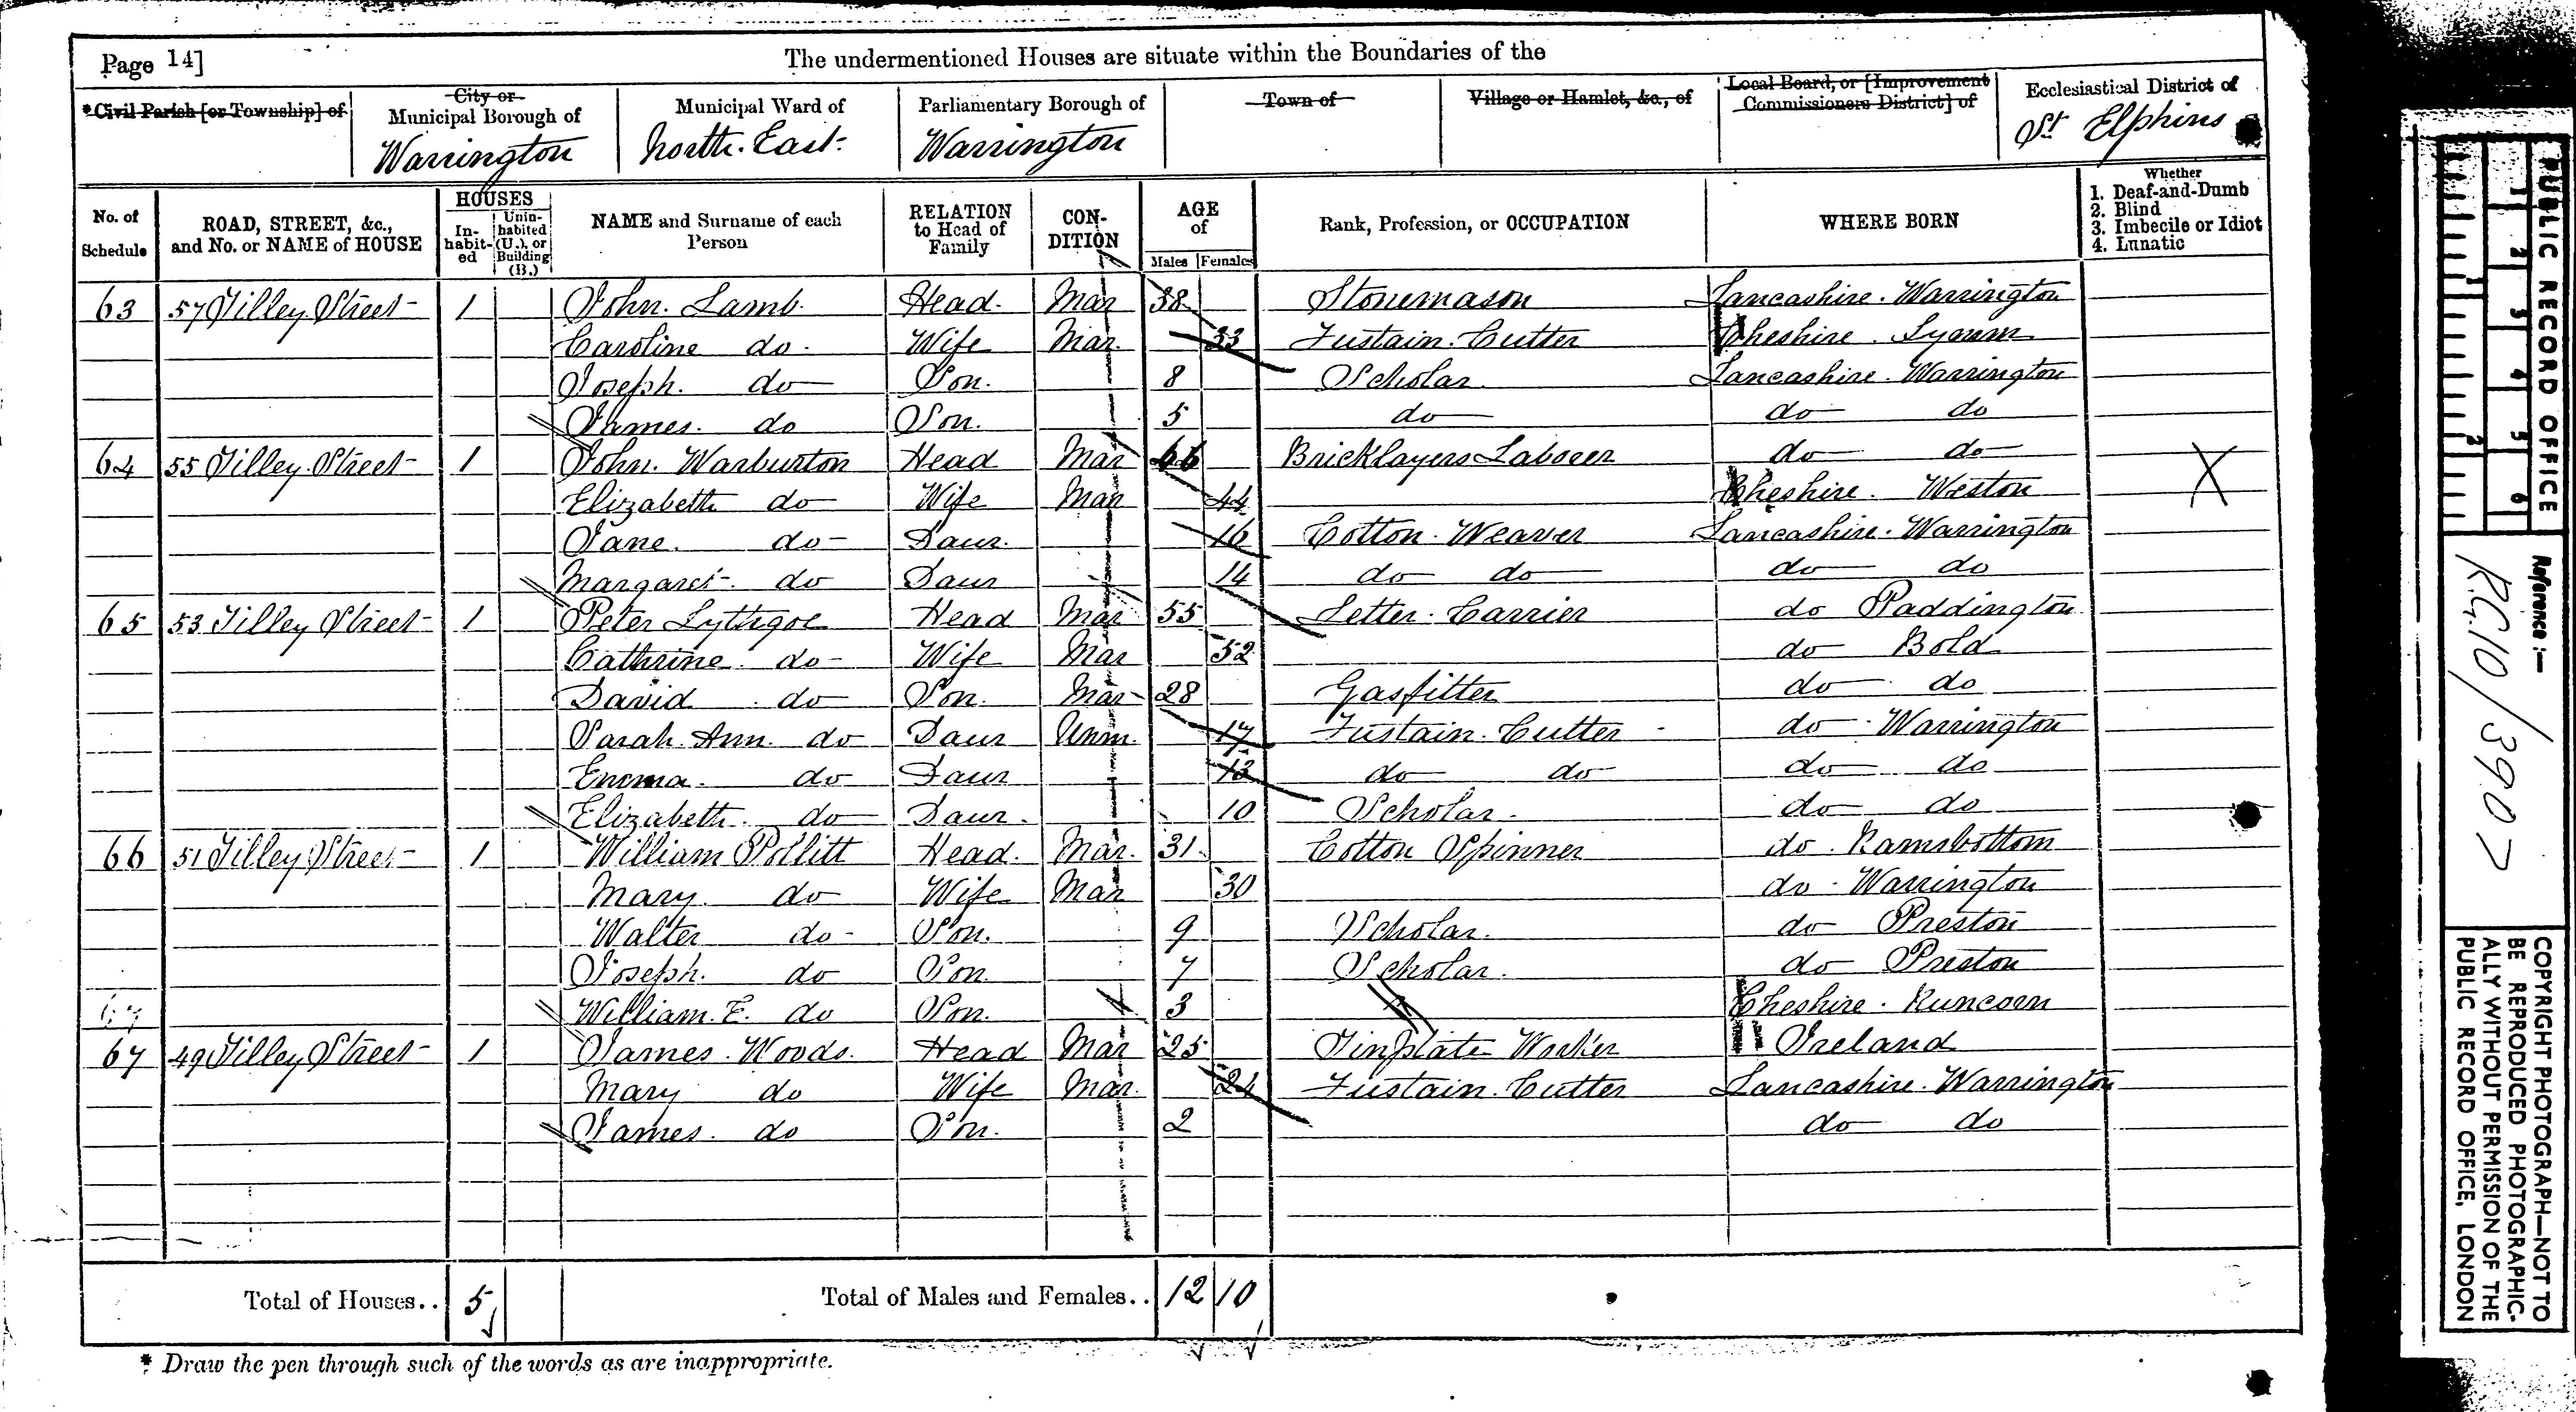 Page 14]
The undermentioned Houses are situate within the Boundaries of the
*Civil Parish [or Township] of
City or Municipal Borough of
Warrington
Municipal Ward of
North. East.
Parliamentary Borough of
Warrington
Town of
Village or Hamlet, &c., of
Local Board, or [Improvement Commissioners District] of
Ecclesiastical District of
St Elphins
No. of Schedule
ROAD, STREET, &c., and No. or NAME of HOUSE
HOUSES
In-habit-ed
Unin-habited (U.), or Building (B.)
NAME and Surname of each Person
RELATION to Head of Family
CON-DITION
AGE of
Males Females
Rank, Profession, or OCCUPATION
WHERE BORN
Whether
1. Deaf-and-Dumb
2. Blind
3. Imbecile or Idiot
4. Lunatic
63 57 Tilley Street 1 John. Lamb. Head. Mar 38 Stonemason Lancashire. Warrington
Caroline do. Wife Mar. 33 Fustain. Cutter Cheshire. Lymm
Joseph. do Son. 8 Scholar Lancashire. Warrington
James. do Son. 5 do do do
64 55 Tilley. Street 1 John. Warburton Head Mar 66 Bricklayers Laborer do do
Elizabeth do Wife Mar 44 Cheshire. Weston X
Jane. do Daur. 16 Cotton. Weaver Lancashire. Warrington
Margaret. do Daur 14 do do do do
65 53 Tilley Street 1 Peter Lythgoe Head Mar 55 Letter. Carrier do Paddington
Cathrine. do Wife Mar 52 do Bold
David do Son. Mar 28 Gasfitter do do
Sarah. Ann. do Daur Unm. 17 Fustain. Cutter do Warrington
Emma. do Daur 13 do do do do
Elizabeth. do Daur. 10 Scholar. do do
66 51 Tilley Street 1 William Pollitt Head. Mar. 31 Cotton Spinner do. Ramsbottom
Mary. do Wife Mar 30 do. Warrington
Walter do Son. 9 Scholar. do Preston
Joseph. do Son. 7 Scholar. do Preston
67 William. E. do Son. 3 Cheshire. Runcorn
67 49 Tilley Street 1 James. Woods. Head Mar 25 Tinplate Worker Ireland
Mary do Wife Mar. 24 Fustain. Cutter Lancashire. Warrington
James. do Son. 2 do do
Total of Houses.. 5
Total of Males and Females.. 12 10
* Draw the pen through such of the words as are inappropriate.
PUBLIC RECORD OFFICE
1 2 3 4 5 6
1 2
Reference:—
R.G.10/3907
COPYRIGHT PHOTOGRAPH—NOT TO
BE REPRODUCED PHOTOGRAPHIC-
ALLY WITHOUT PERMISSION OF THE
PUBLIC RECORD OFFICE, LONDON